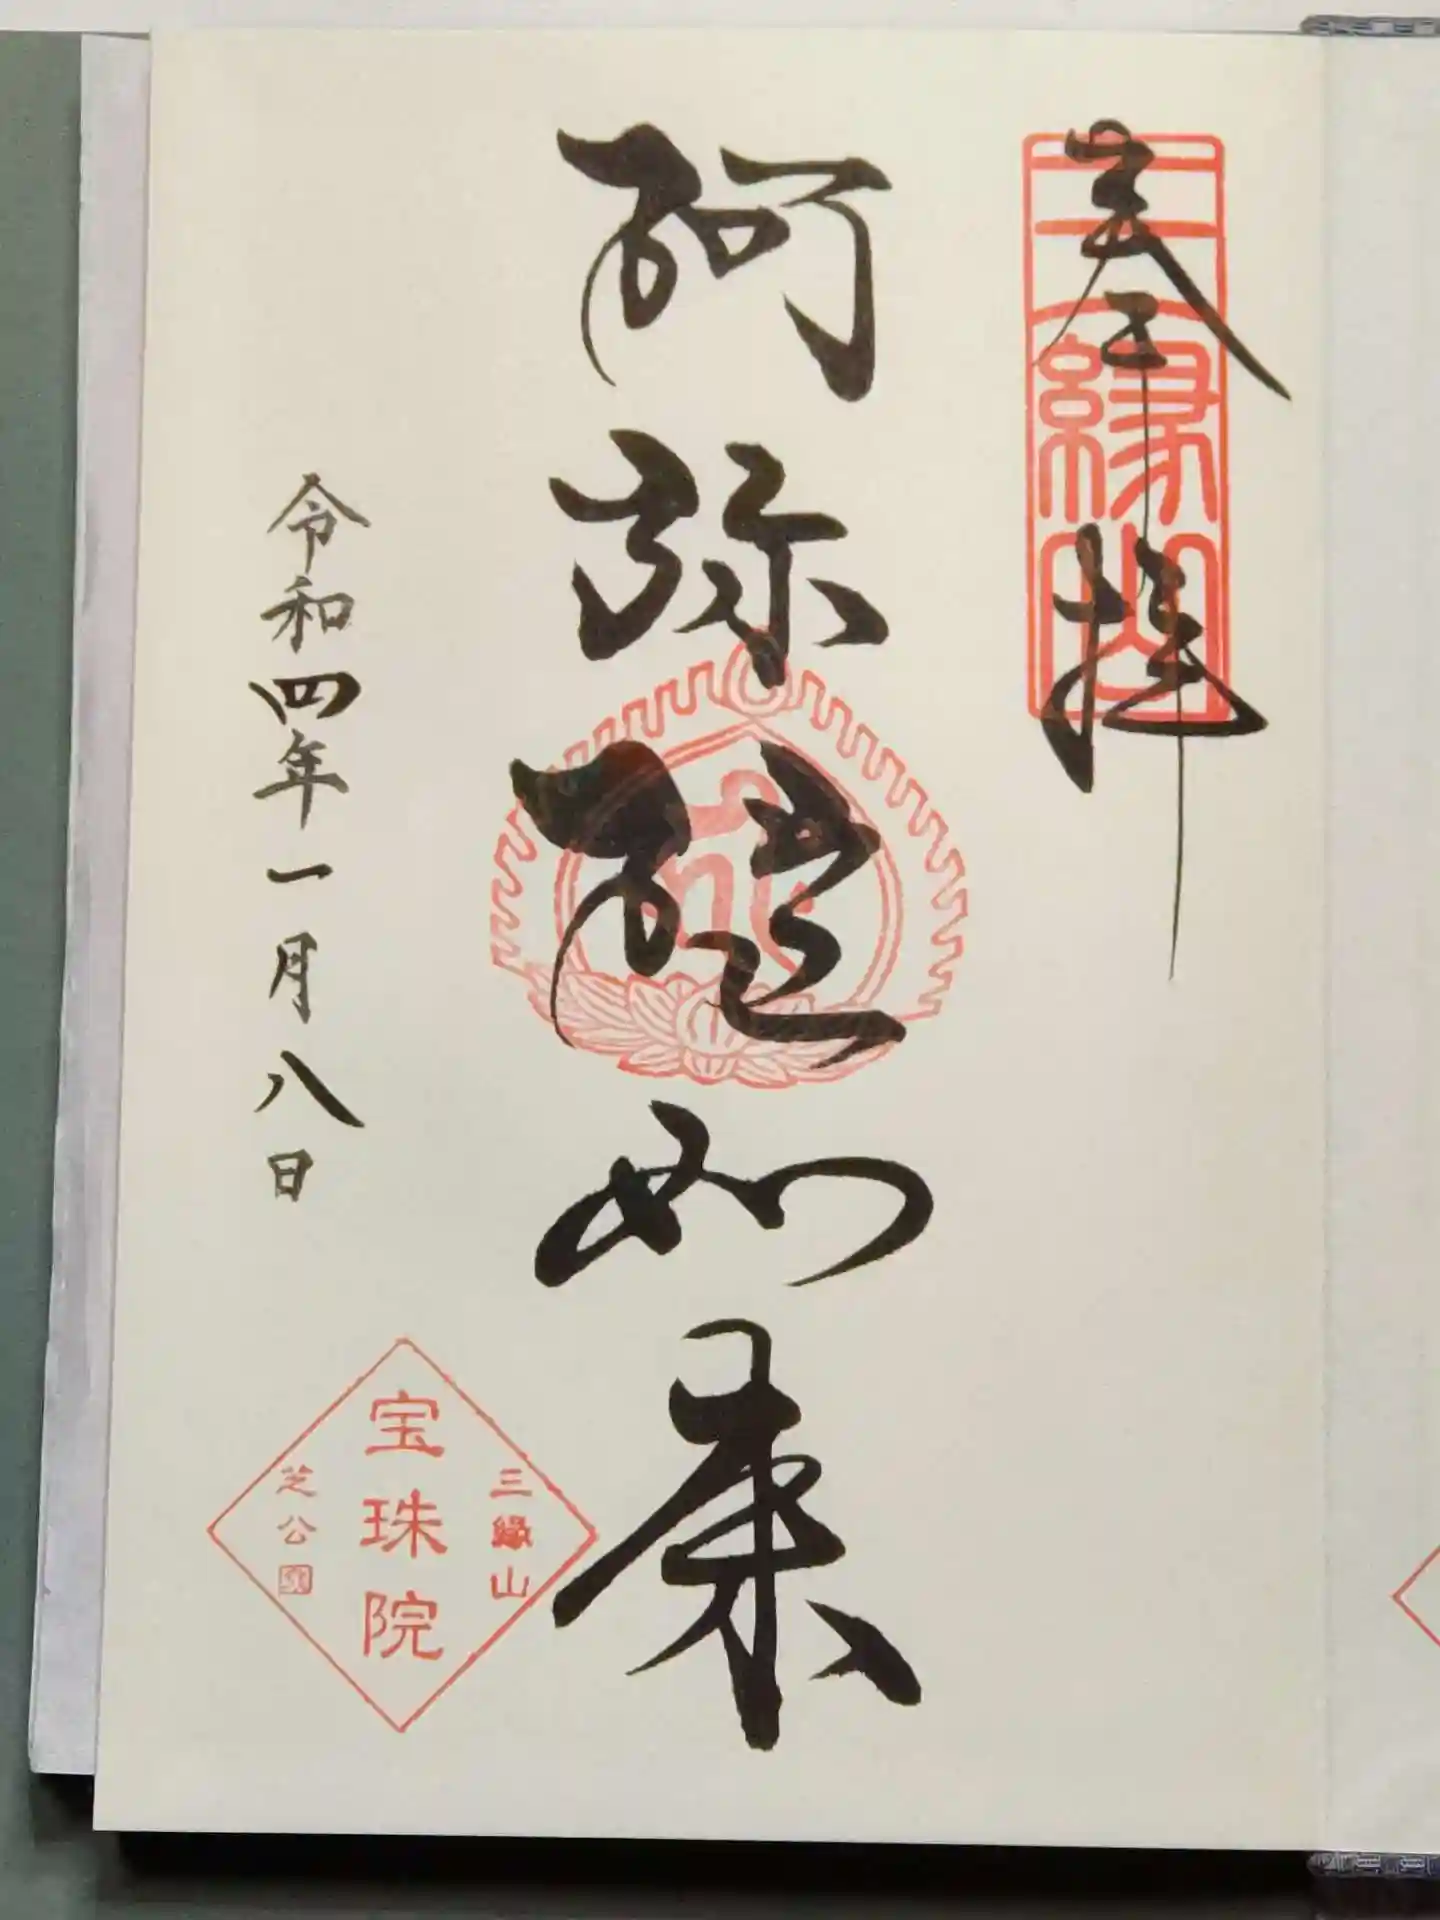 奉拝
三縁山
阿弥陀如来
令和四年一月八日
三縁山
宝珠院
芝公園